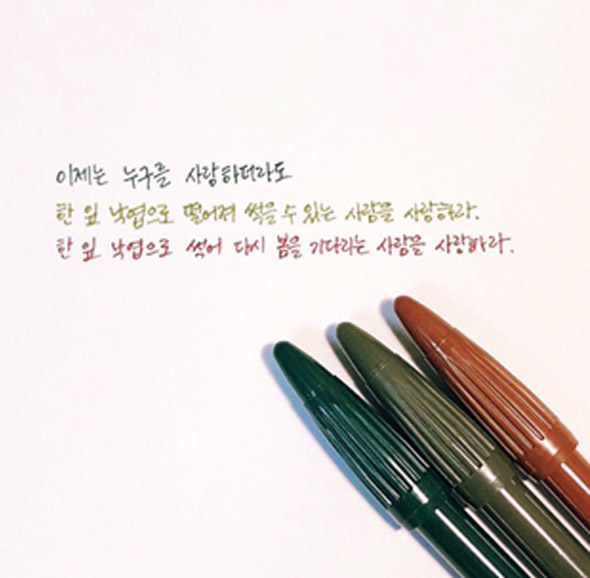 이제는 누구를 사랑하더라도
한 잎 낙엽으로 떨어져 썩을 수 있는 사람을 사랑하라.
한 잎 낙엽으로 썩어 다시 봄을 기다리는 사람을 사랑하라.